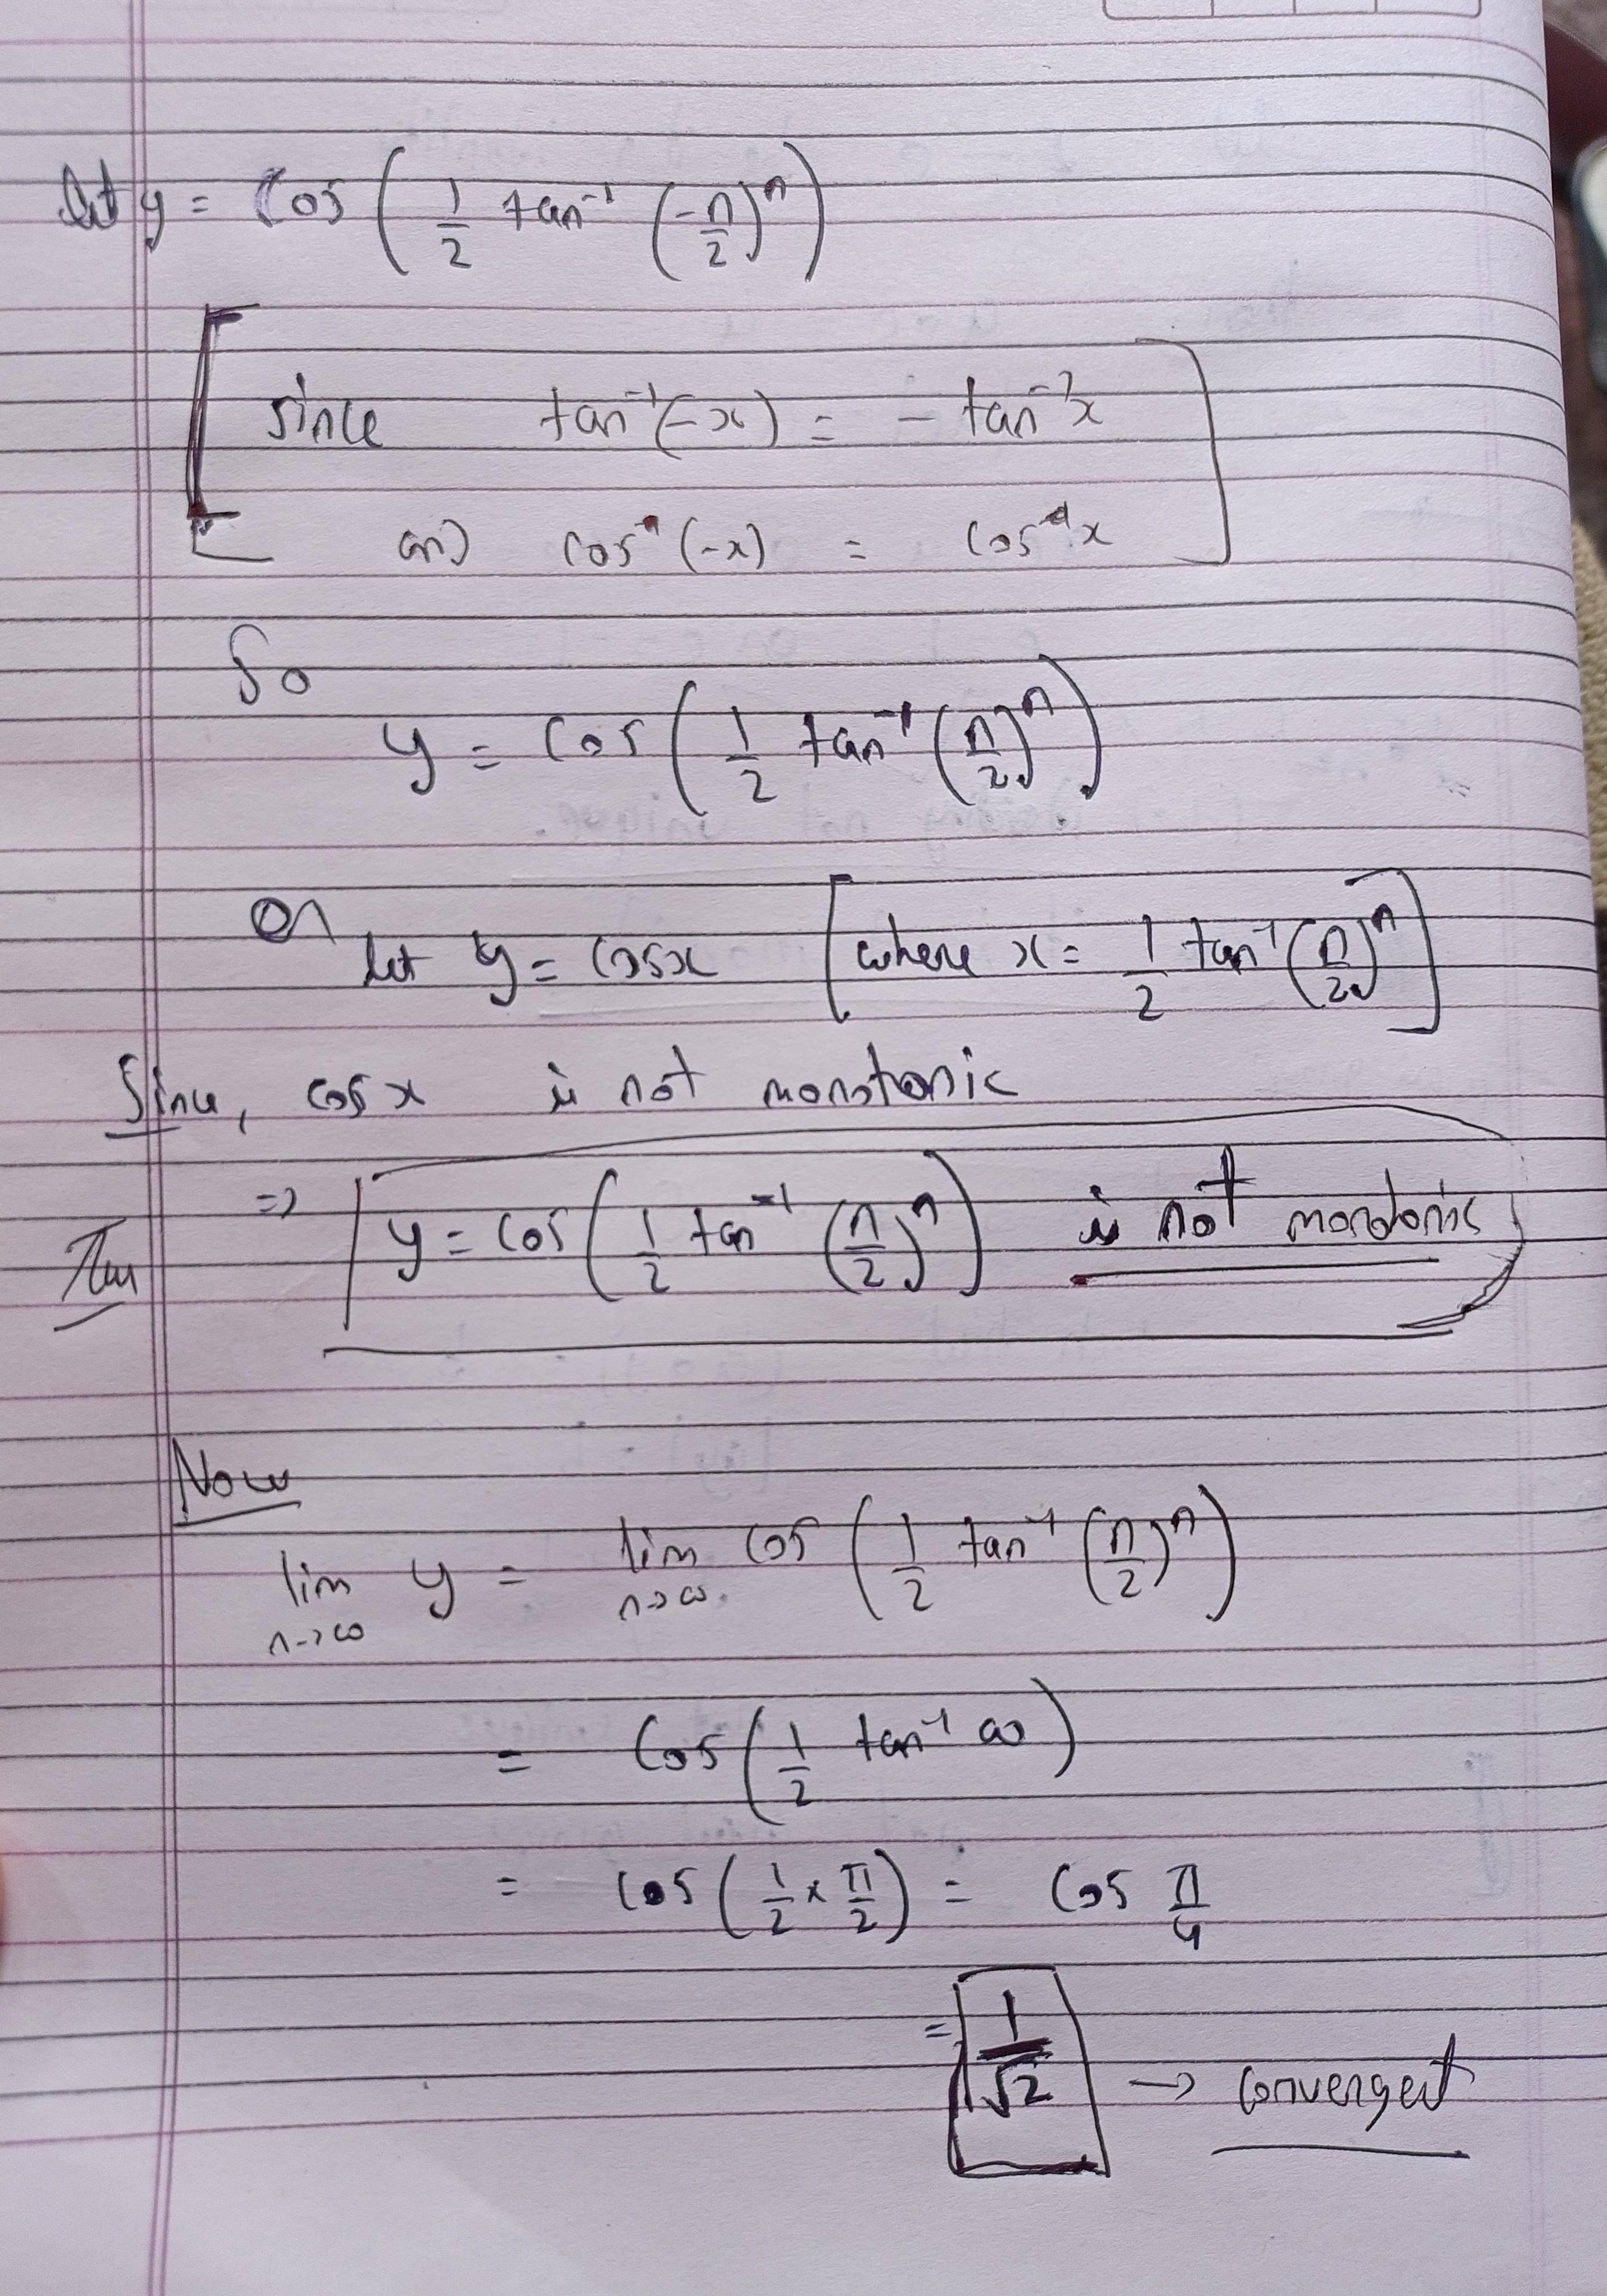 let y = cos (1/2 tan⁻¹ (-n/2)ⁿ)
[since tan⁻¹(-x) = - tan⁻¹x
cos (-x) = cos x]
So
y = cos (1/2 tan⁻¹ (n/2)ⁿ)
or let y = cosx [where x = 1/2 tan⁻¹ (n/2)ⁿ]
Since, cos x is not monotonic
⇒ y = cos (1/2 tan⁻¹ (n/2)ⁿ) is not monotonic
Now
lim n→∞ y = lim n→∞ cos (1/2 tan⁻¹ (n/2)ⁿ)
= cos (1/2 tan⁻¹ ∞)
= cos (1/2 × π/2) = cos π/4
= 1/√2 → convergent